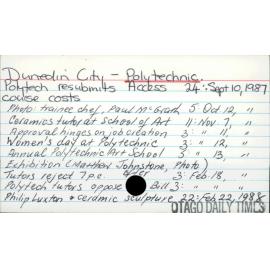 Dunedin City - Polytechnic.
Polytech resubmits Access 24: Sept 10, 1987
course costs
Photo: trainee chef, Paul McGrath 5: Oct 12, "
Ceramics tutor at School of Art 11: Nov 7, "
Approval hinges on job creation 3: " 11, "
Women's day at Polytechnic 3: " 12, "
Annual Polytechnic Art School 3: " 13, "
Exhibition (Matthew Johnstone, Photo)
Tutors reject 7 p.c. offer 3: Feb 18, "
Polytech tutors oppose Bill 3: " "
Philip Luxton & ceramic sculpture 22: Feb 22, 1988
OTAGO DAILY TIMES